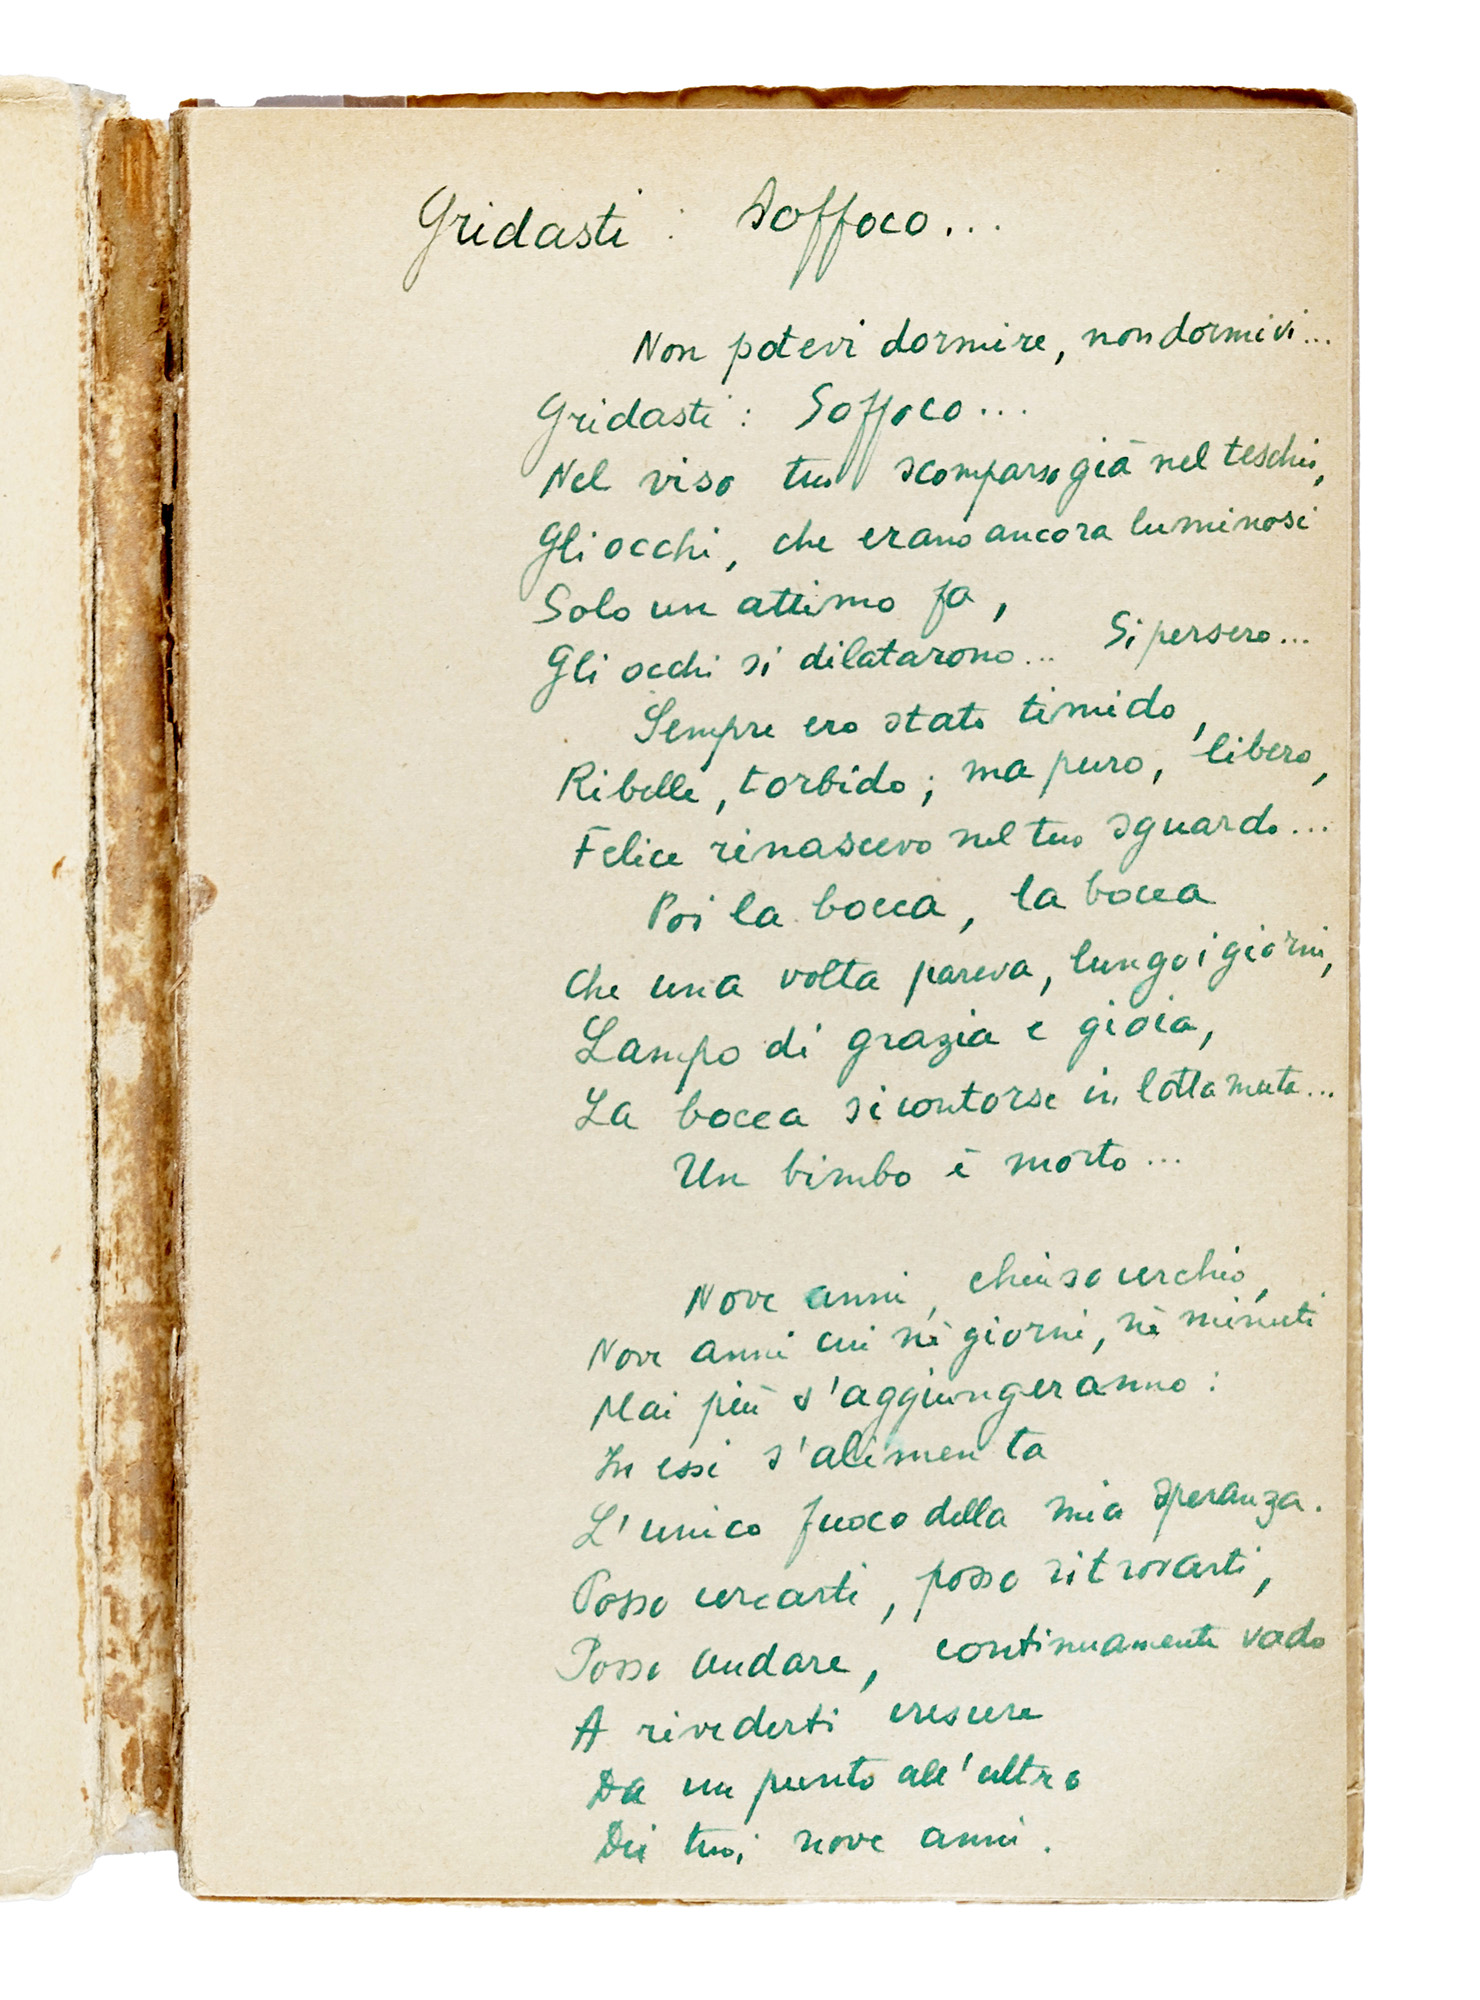 Gridasti : Soffoco...
Non potevi dormire, non dormivi...
Gridasti : Soffoco...
Nel viso tuo scomparso già nel teschio,
Gli occhi, che erano ancora luminosi
Solo un attimo fa,
Gli occhi si dilatarono... Si persero...
Sempre ero stato timido,
Ribelle, torbido; ma puro, libero,
Felice rinascevo nel tuo sguardo...
Poi la bocca, la bocca
Che una volta pareva, lungo i giorni,
Lampo di grazia e gioia,
La bocca si contorse in lotta muta...
Un bimbo è morto...
Nove anni, chiuso cerchio,
Nove anni cui nè giorni, nè minuti
Mai più s'aggiungeranno :
In essi s'alimenta
L'unico fuoco della mia speranza.
Posso cercarti, posso ritrovarti,
Posso andare, continuamente vado
A rivederti crescere
Da un punto all'altro
Dei tuoi nove anni.